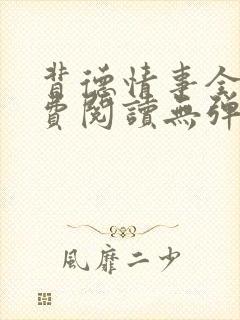 背德情事全
費閱讀無彈
風靡二少